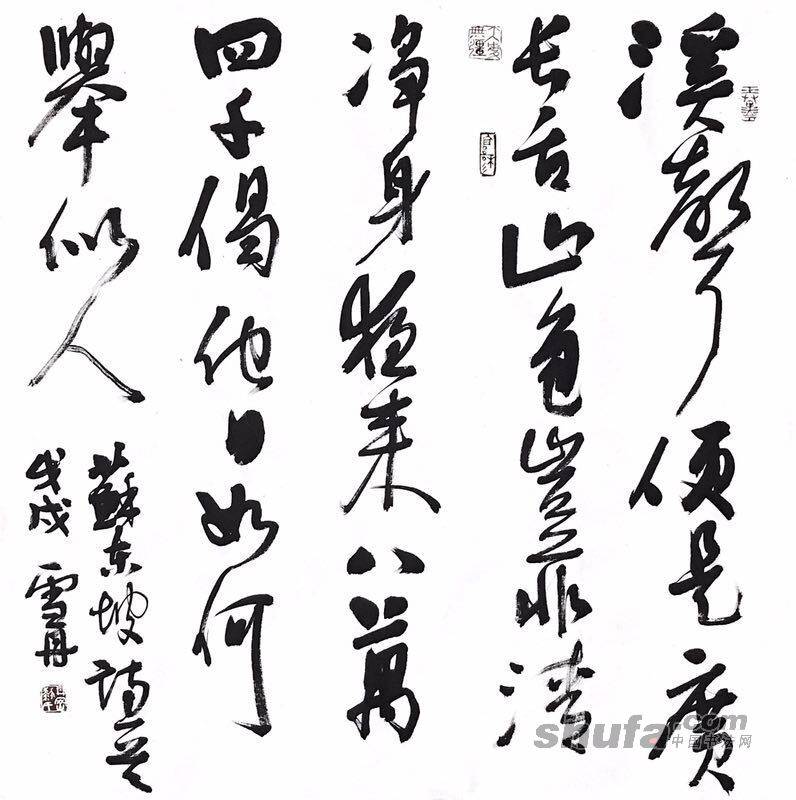 溪聲便是廣
长舌山色豈非清
净身夜来八萬
四千偈他日如何
舉似人
蘇东坡詩
戊戌 雪
shufa.com
中国书法网